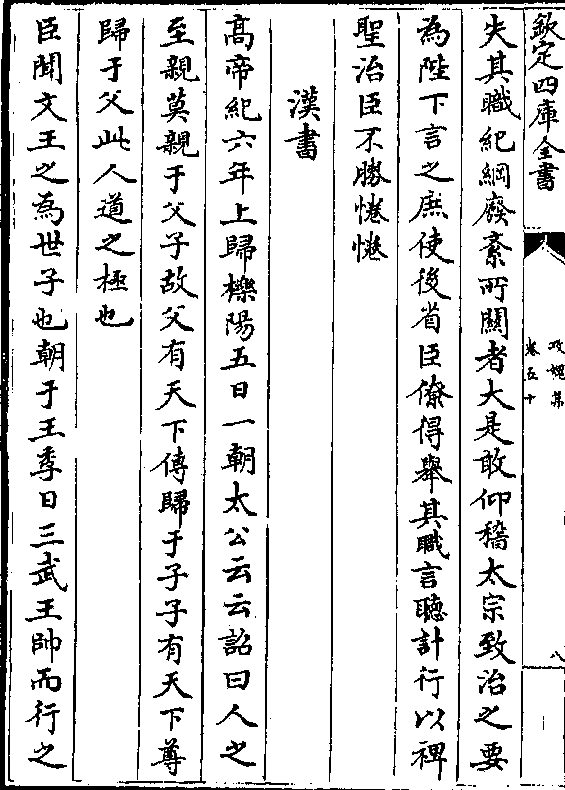 欽定四庫全書
攻媿集
卷五十
八
失其職紀綱廢紊所關者大是敢仰稽太宗致治之要
為陛下言之庶使後省臣僚得舉其職言聽計行以裨
聖治臣不勝惓惓
漢書
髙帝紀六年上歸櫟陽五日一朝太公云云詔曰人之
至親莫親于父子故父有天下傳歸于子子有天下尊
歸于父此人道之極也
臣聞文王之為世子也朝于王季日三武王帥而行之